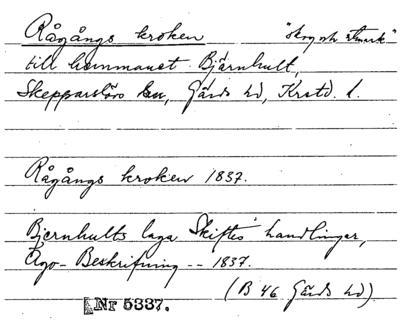 Rågångs kroken "skog och utmark"
till hemmanet Bjärnhult,
Skepparslövs sn, Gärds hd, Krstd. l.
Rågångs kroken 1837.
Bjernhults laga Skiftes handlingar,
Ägo-Beskrifning -- 1837.
(B 46 Gärds hd)
Nr 5337.